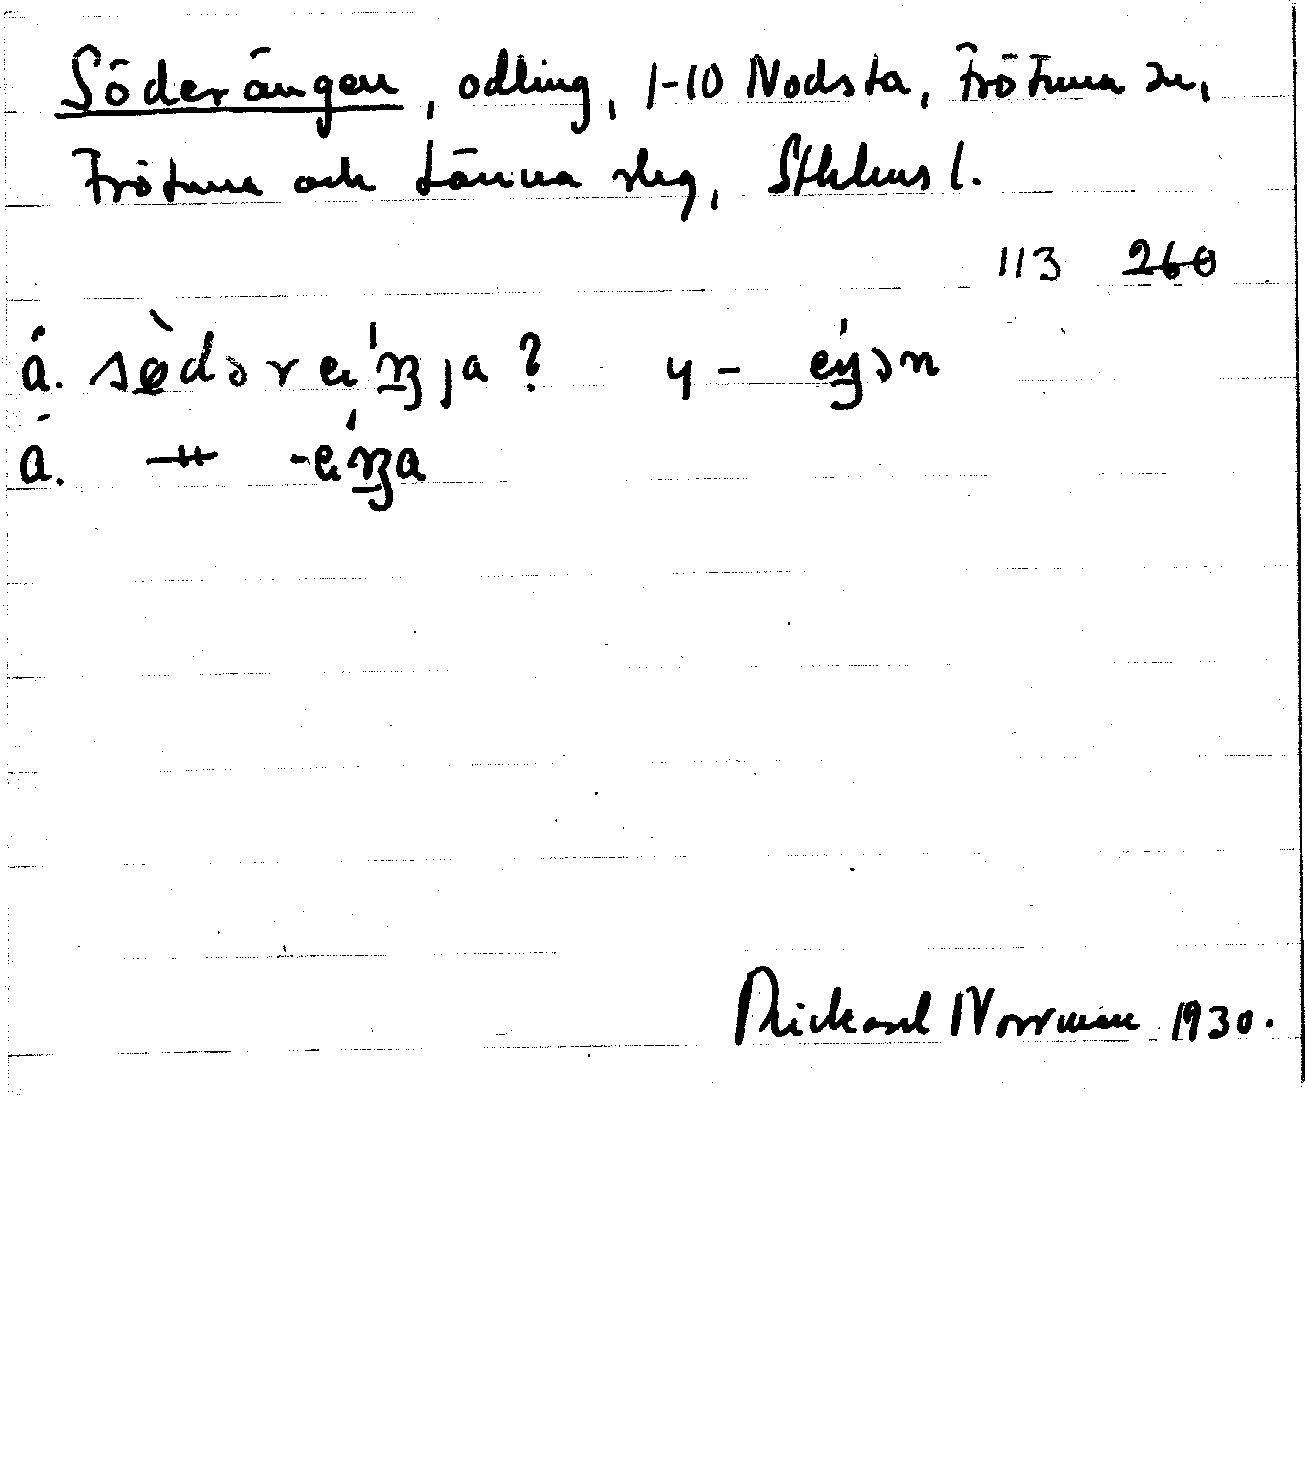 Söderängen, odling, 1-10 Nodsta, Frötuna sn,
Frötuna och Länna slag, Sthlms l.
113 260
á. sødər ? y -
á. -
Rickard Norrman 1930.